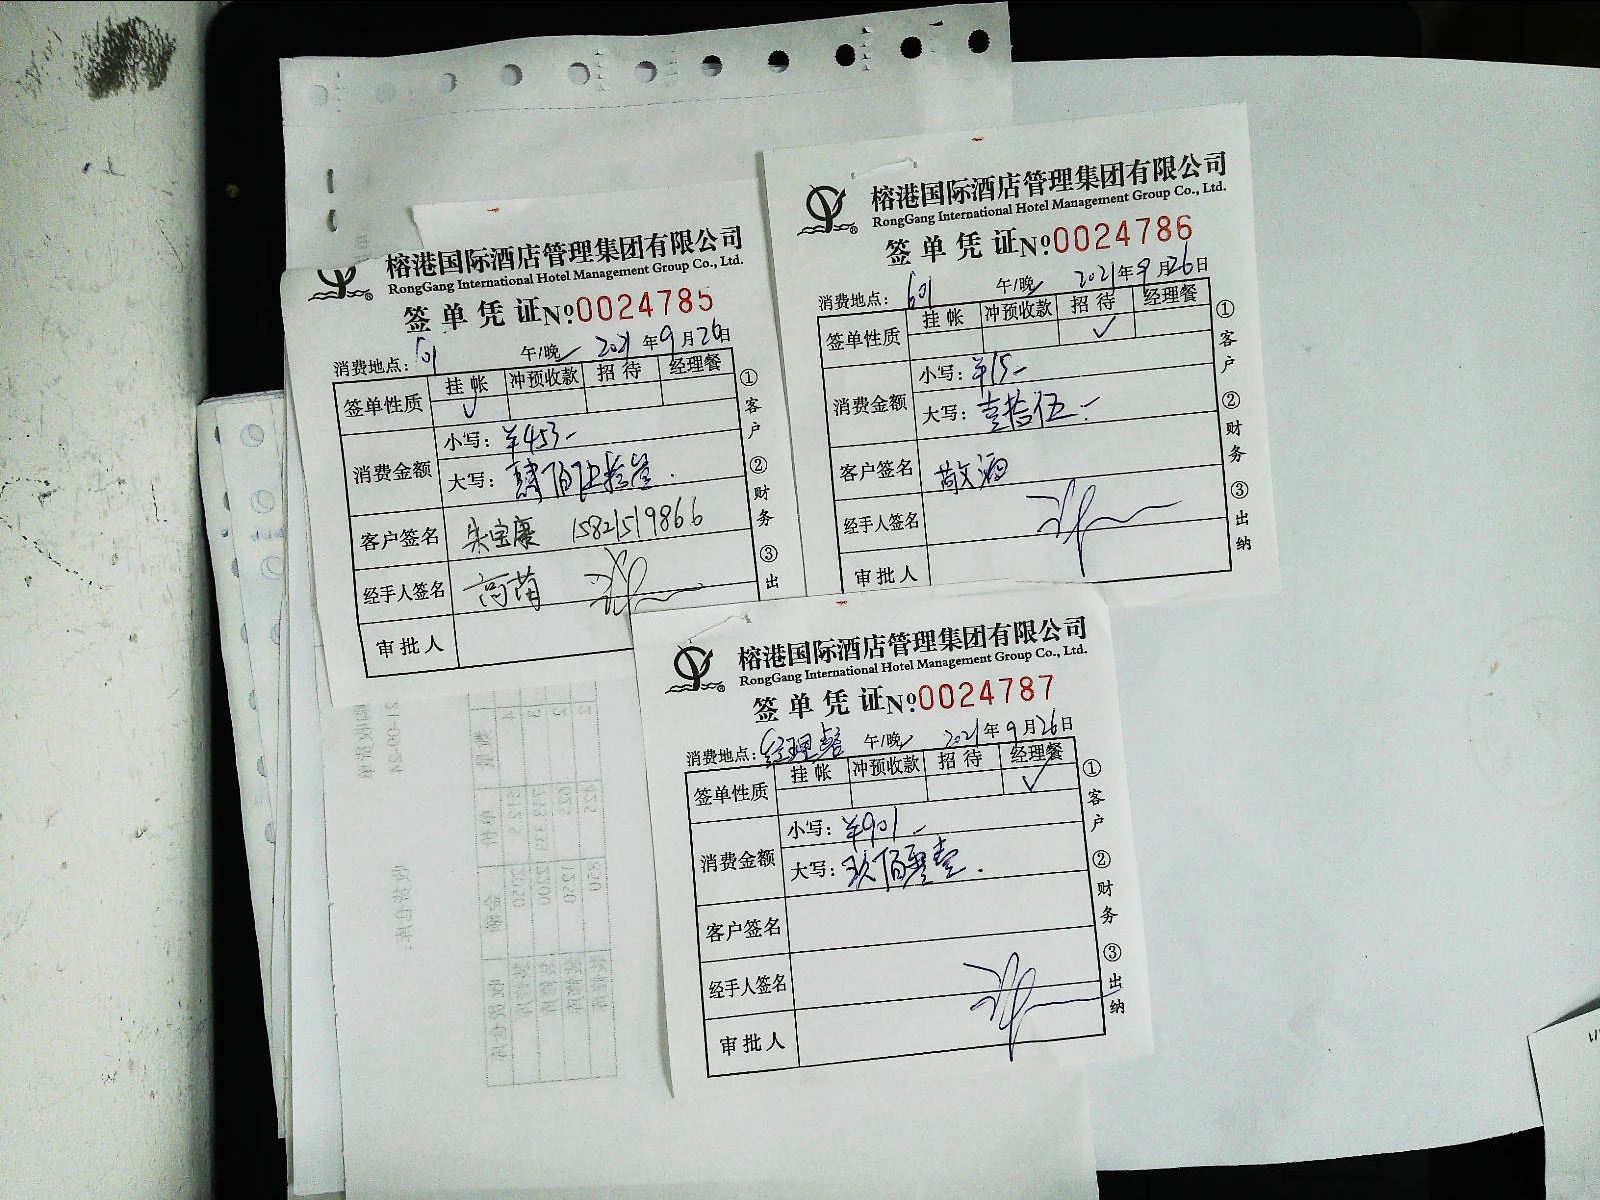 榕港国际酒店管理集团有限公司
RongGang International Hotel Management Group Co., Ltd.
签单凭证No:0024785
消费地点: 601 午/晚 2021年9月26日
签单性质 挂帐 冲预收款 招待 经理餐
✓
消费金额 小写: ¥453-
大写: 肆佰伍拾叁.
客户签名 朱宝康 15821519866
经手人签名 高苗
审批人
①客户 ②财务 ③出
榕港国际酒店管理集团有限公司
RongGang International Hotel Management Group Co., Ltd.
签单凭证No:0024786
消费地点: 601 午/晚 2021年9月26日
签单性质 挂帐 冲预收款 招待 经理餐
✓
消费金额 小写: ¥15-
大写: 壹拾伍.-
客户签名 敬酒
经手人签名
审批人
①客户 ②财务 ③出纳
榕港国际酒店管理集团有限公司
RongGang International Hotel Management Group Co., Ltd.
签单凭证No:0024787
消费地点: 经理餐 午/晚 2021年9月26日
签单性质 挂帐 冲预收款 招待 经理餐
✓
消费金额 小写: ¥901-
大写: 玖佰零壹.
客户签名
经手人签名
审批人
①客户 ②财务 ③出纳